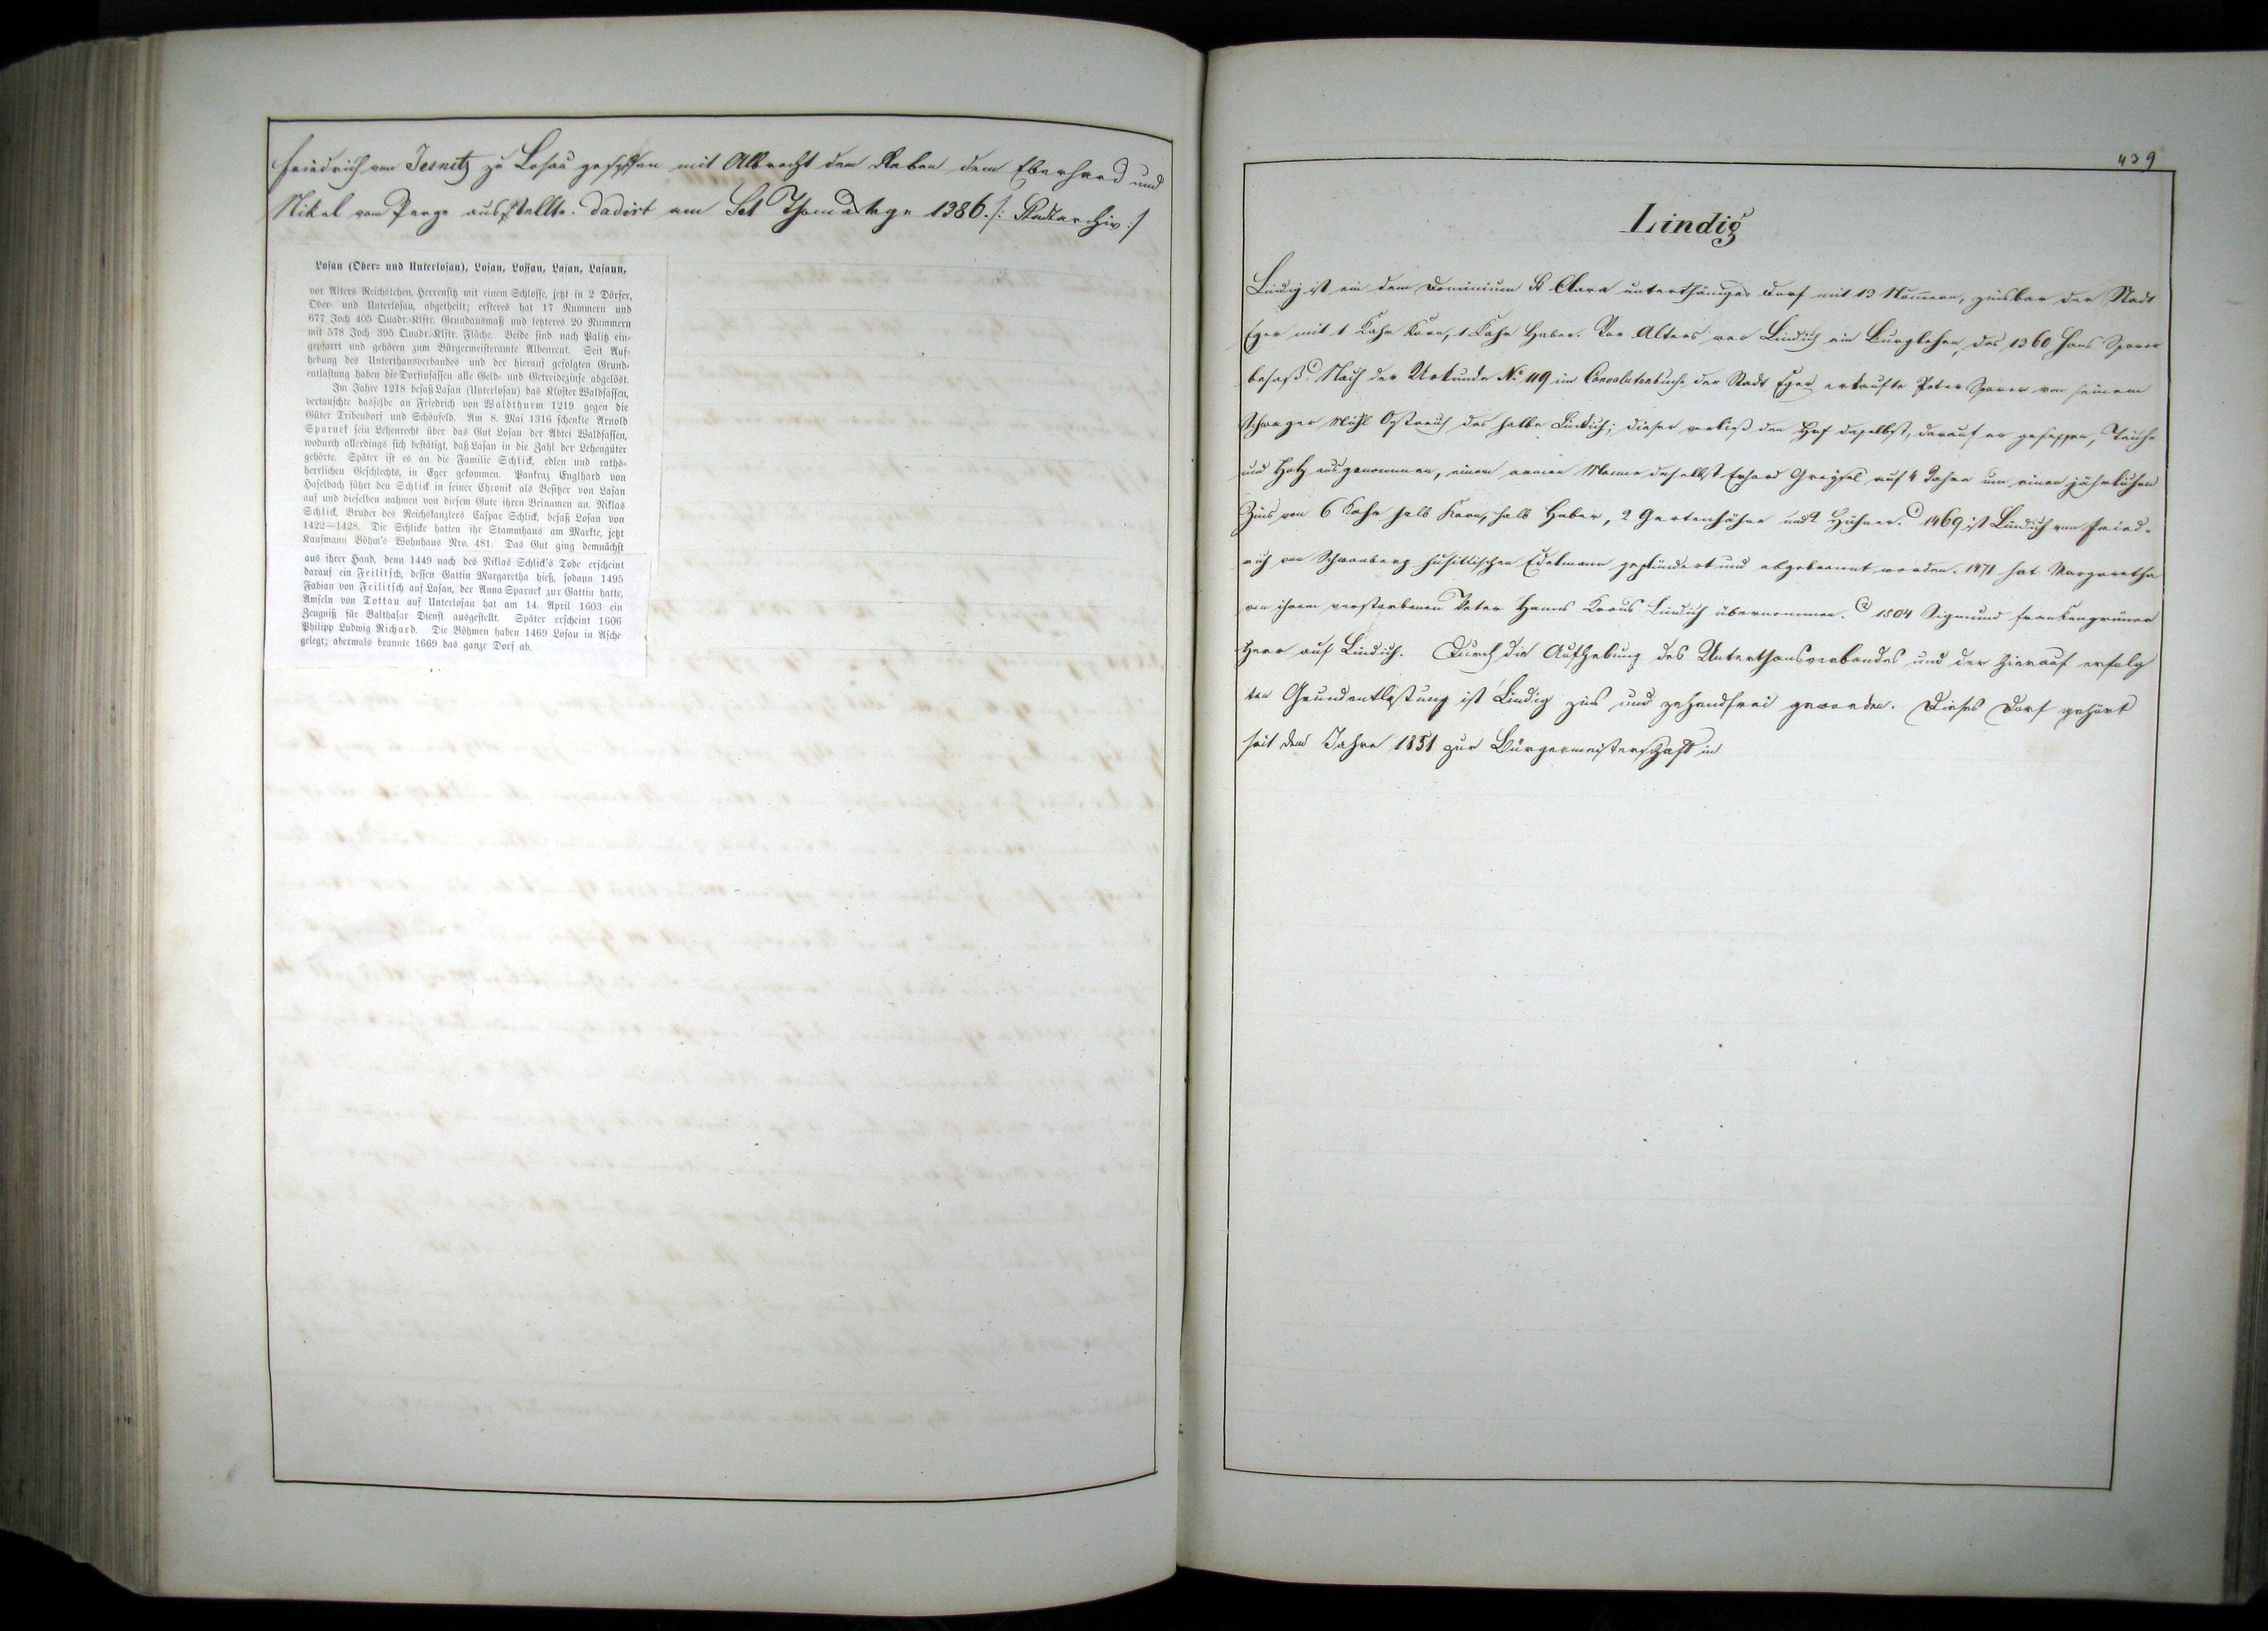 Friedrich von Jesnitz zu Losau gesessen mit Albrecht dem Raben dem Eberhard und
Nikel vom Perge ausstellte. dadirt am Sct Thomastage 1386. /: Stadtarchiv :/
Losau (Ober- und Unterlosau), Losan, Lossau, Lasan, Lasaun,
vor Alters Reichslehen, Herrensitz mit einem Schlosse, jetzt in 2 Dörfer,
Ober- und Unterlosau, abgetheilt; ersteres hat 17 Nummern und
677 Joch 405 Quadr.-Klftr. Grundausmaß und letzteres 20 Nummern
mit 578 Joch 395 Quadr.-Klftr. Fläche. Beide sind nach Palitz ein-
gepfarrt und gehören zum Bürgermeisteramte Albenreut. Seit Auf-
hebung des Unterthansverbandes und der hierauf gefolgten Grund-
entlastung haben die Dorfinsassen alle Geld- und Getreidezinse abgelöst.
Im Jahre 1218 besaß Lasan (Unterlosau) das Kloster Waldsassen,
vertauschte dasselbe an Friedrich von Waldthurm 1219 gegen die
Güter Tribendorf und Schönfeld. Am 8. Mai 1316 schenkte Arnold
Sparnek sein Lehenrecht über das Gut Losau der Abtei Waldsassen,
wodurch allerdings sich bestätigt, daß Lasan in die Zahl der Lehengüter
gehörte. Später ist es an die Familie Schlick, edlen und raths-
herrlichen Geschlechts, in Eger gekommen. Pankraz Englhard von
Haselbach führt den Schlick in seiner Chronik als Besitzer von Lasan
auf und dieselben nahmen von diesem Gute ihren Beinamen an. Niklas
Schlick, Bruder des Reichskanzlers Caspar Schlick, besaß Losau von
1422—1428. Die Schlicke hatten ihr Stammhaus am Markte, jetzt
Kaufmann Böhm's Wohnhaus Nro. 481. Das Gut ging demnächst
aus ihrer Hand, denn 1449 nach des Niklas Schlick's Tode erscheint
darauf ein Feilitsch, dessen Gattin Margaretha hieß, sodann 1495
Fabian von Feilitsch auf Lasan, der Anna Sparnek zur Gattin hatte.
Amseln von Tottau auf Unterlosau hat am 14. April 1603 ein
Zeugniß für Balthasar Dienst ausgestellt. Später erscheint 1606
Philipp Ludwig Richard. Die Böhmen haben 1469 Losau in Asche
gelegt; abermals brannte 1669 das ganze Dorf ab.
439
Lindig
Lindig ist ein dem Dominium St Clara unterthäniges Dorf mit 13 Nummern, zinsbar der Stadt
Eger mit 1 Kahr Korn, 1 Kahr Haber. Vor Alters war Lindich ein Burglehen, das 1360 Hans Sparer
besaß. Nach der Urkunde No 119 im Convolutenbuche der Stadt Eger erkaufte Peter Sparer von seinem
Schwager das halbe Lindich; dieser verließ den Hof daselbst, darauf er gesessen, Teiche
und Holz ausgenommen, einem armen Manne daselbst Erhard auf 4 Jahre um einen jährlichen
Zins von 6 Kahr halb Korn, halb Haber, 2 und 2 Hühner. 1469 ist Lindich von Fried-
rich von Schwanberg husitischen Edelmann geplündert und abgebrannt worden. 1471 hat Margaretha
von ihrem verstorbenen Vater Hanns Kraus Lindich übernommen. 1504 Sigmund Frankengrüner
Herr auf Lindich. Durch die Aufhebung des Unterthansverbandes und der hierauf erfolg
ten Grundentlastung ist Lindig zins und zehendfrei geworden. Dieses Dorf gehört
seit dem Jahre 1851 zur Bürgermeisterschaft in